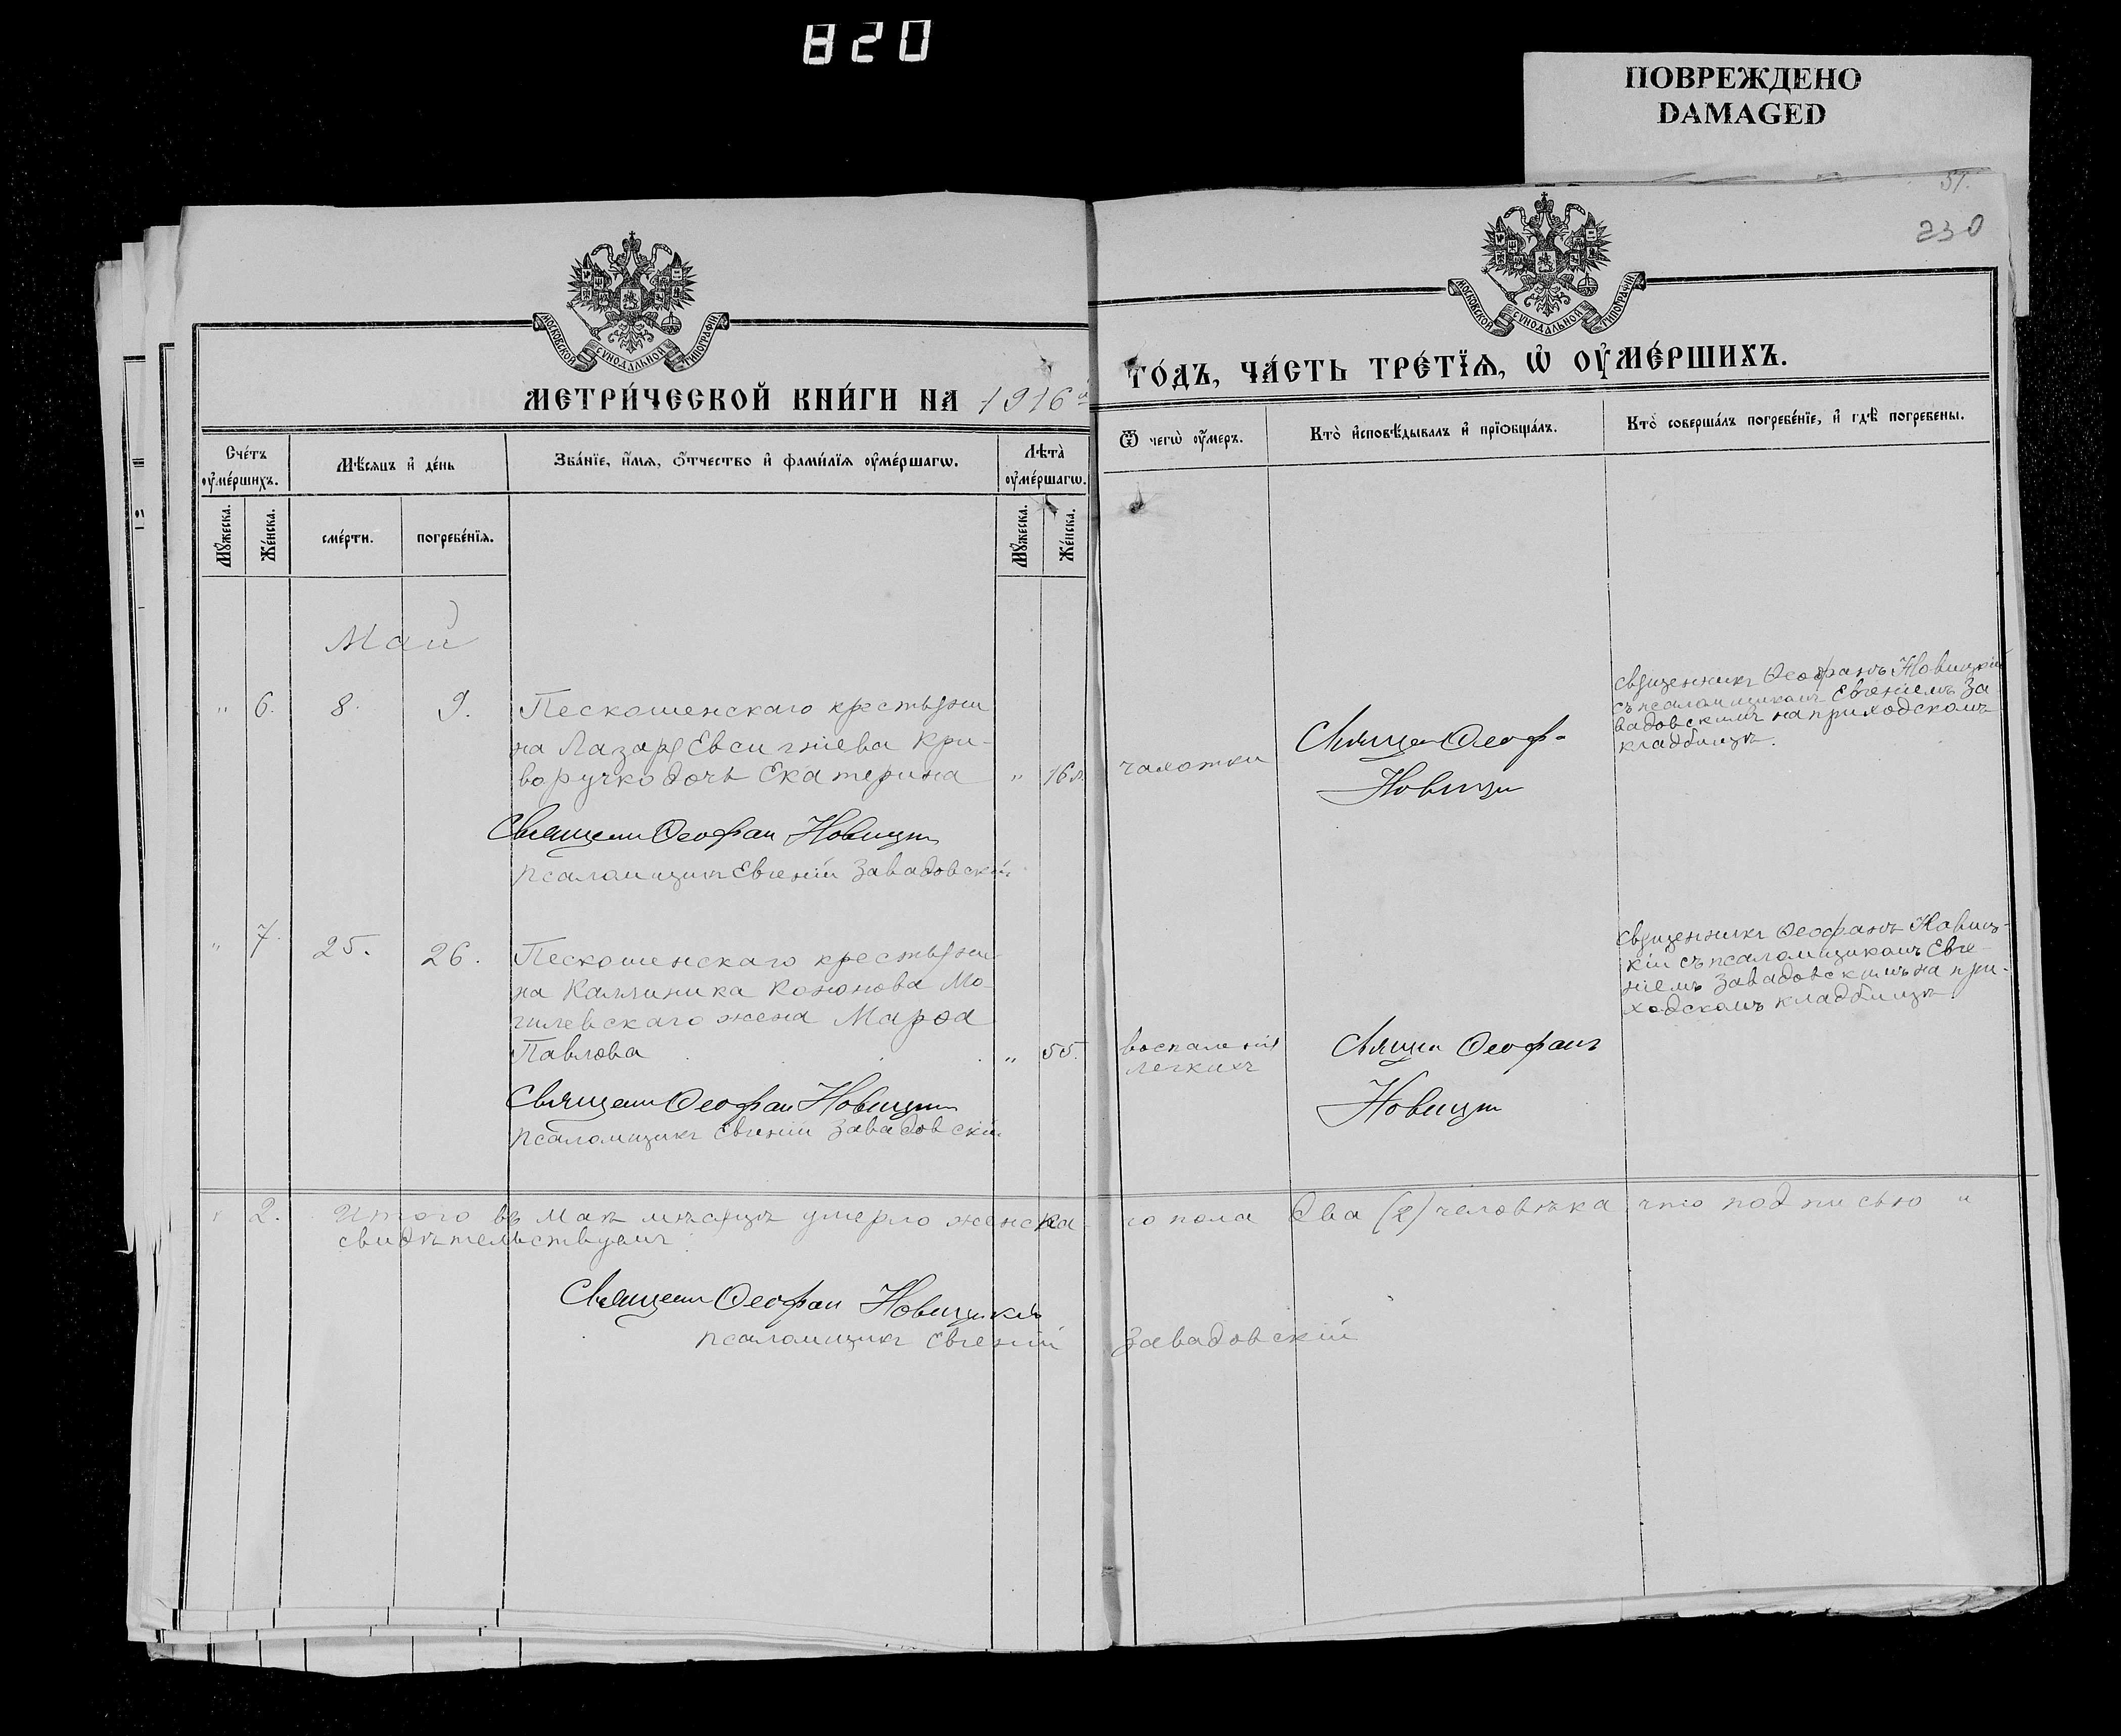 820
ПОВРЕЖДЕНО
DAMAGED
51.
230
МОСКОВСКОЙ СѴНОДАЛЬНОЙ ТИПОГРАФІИ
МОСКОВСКОЙ СѴНОДАЛЬНОЙ ТИПОГРАФІИ
МЕТРИ́ЧЕСКОЙ КНИ́ГИ НА 1916й
ГО́ДЪ, ЧА́СТЬ ТРЕ́ТЇѦ, Ѡ҆ ОУ҆МЕ́РШИХЪ.
Сче́тъ оу҆ме́ршихъ.
Мѣ́сѧцъ и҆ де́нь
Зва́нїе, и҆́мѧ, ѻ҆́тчество и҆ фами́лїѧ оу҆ме́ршагѡ.
Лѣ́та оу҆ме́ршагѡ.
Ѿ чегѡ̀ оу҆́меръ.
Кто̀ и҆сповѣ́дывалъ и҆ прїѡбща́лъ.
Кто̀ соверша́лъ погребе́нїе, и҆ гдѣ̀ погребены.
Мꙋ́жеска.
Же́нска.
сме́рти.
погребе́нїѧ.
Мꙋ́жеска.
Же́нска.
Май
" 6. 8. 9. Пескошенскаго крестьяни
на Лазаря Евсигніева Кри-
воручко дочь Екатерина " 16 л.
Священн Ѳеофан Новицкі
псаломщикъ Евгеній Завадовскій
чахотки
Священ Ѳеоф
Новицкі
священникъ Ѳеофанъ Новицкій
съ псаломщикомъ Евгеніемъ За
вадовскимъ на приходскомъ
кладбищѣ.
" 7. 25. 26. Пескошенскаго крестьяни
на Каллиника Кононова Мо-
гилевскаго жена Марѳа
Павлова " 55.
Священн Ѳеофан Новицкі
псаломщикъ Евгеній Завадовскій
воспаленія
легкихъ
Священ Ѳеофанъ
Новицкі
священникъ Ѳеофанъ Новиц-
кій съ псаломщикомъ Евге-
ніемъ Завадовскимъ на при-
ходскомъ кладбищѣ.
" 2. Итого въ Маѣ мѣсяцѣ умерло женска го пола два (2) человѣка что подписью "
свидѣтельствуемъ:
Священн Ѳеофан Новицкій
псаломщикъ Евгеній Завадовскій